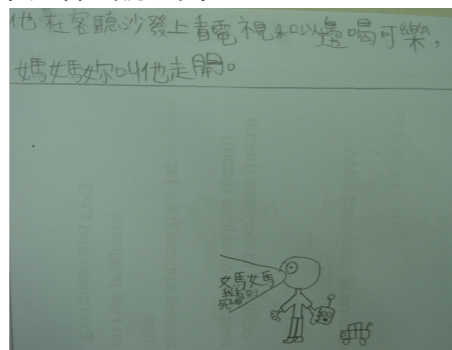 他在客聽沙發上看電視和以邊喝可樂,
媽媽妳叫他走開。
媽媽